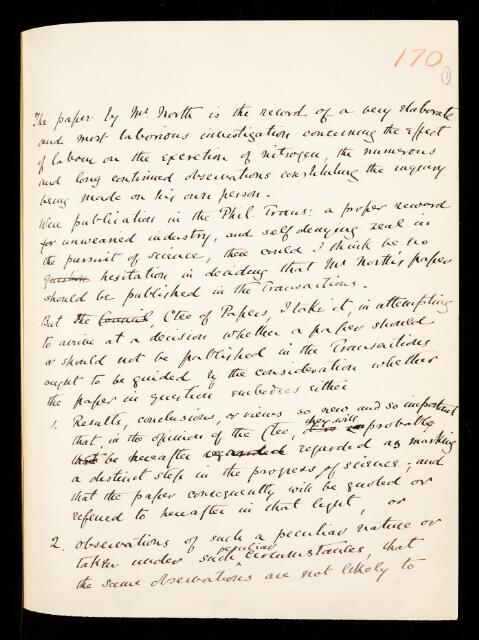 170
1
The paper by Mr. North is the record of a very elaborate
and most laborious investigation concerning the effect
of labour on the excretion of nitrogen, the numerous
and long continued observations constituting the inquiry
being made on his own person.
Were publication in the Phil. Trans: a proper reward
for unwearied industry, and self denying zeal in
the pursuit of science, there could I think be no
question hesitation in deciding that Mr North's paper
should be published in the Transactions.
But the Council, Ctee of Papers, I take it, in attempting
to arrive at a decision whether a paper should
or should not be published in the Transactions
ought to be guided by the consideration whether
the paper in question embodies either
1. Results, conclusions, or views so new and so important
that, in the opinion of the Ctee, they will probably
that be hereafter regarded regarded as marking
a distinct step in the progress of science, and
that the paper consequently will be quoted or
referred to hereafter in that light, or
2. observations of such a peculiar nature or
taken under such peculiar circumstances, that
the same observations are not likely to